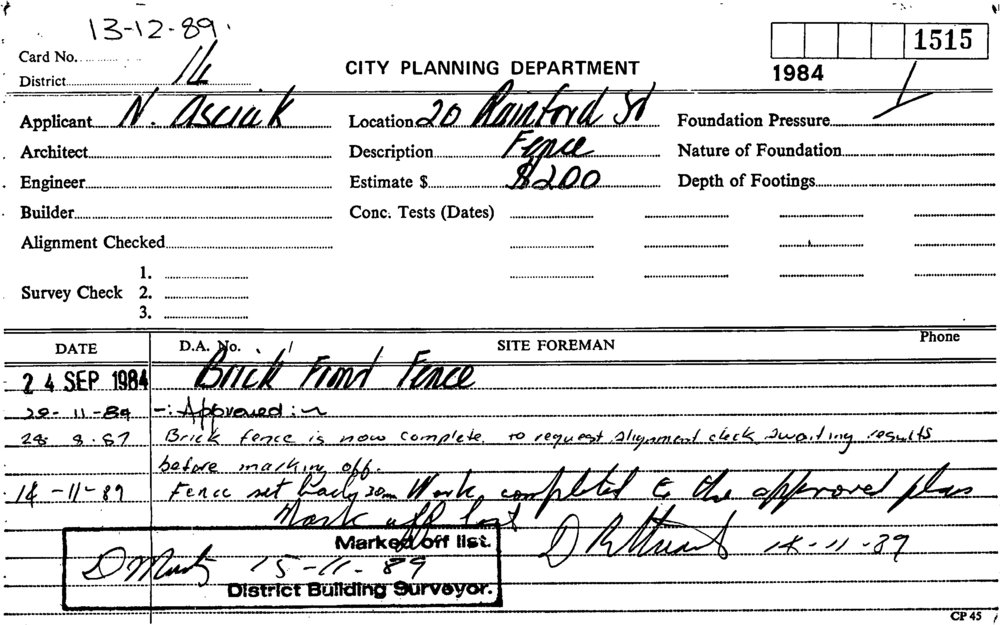 13-12-89.
1515
Card No.
District 14
CITY PLANNING DEPARTMENT
1984
Applicant N. Location 20 Rainford St Foundation Pressure
Architect Description Fence Nature of Foundation
Engineer Estimate $ $200 Depth of Footings
Builder Conc. Tests (Dates)
Alignment Checked
1.
Survey Check 2.
3.
DATE D.A. No. SITE FOREMAN Phone
24 SEP 1984 Brick Front Fence
-11-84 -: Approved :-
28 8.87 Brick fence is now complete, to request alignment check awaiting results
before marking off.
14-11-89 Fence set back 20m Work completed to the approved plan
Mark off list
Marked off list. 14-11-89
15-11-89
District Building Surveyor.
CP 45